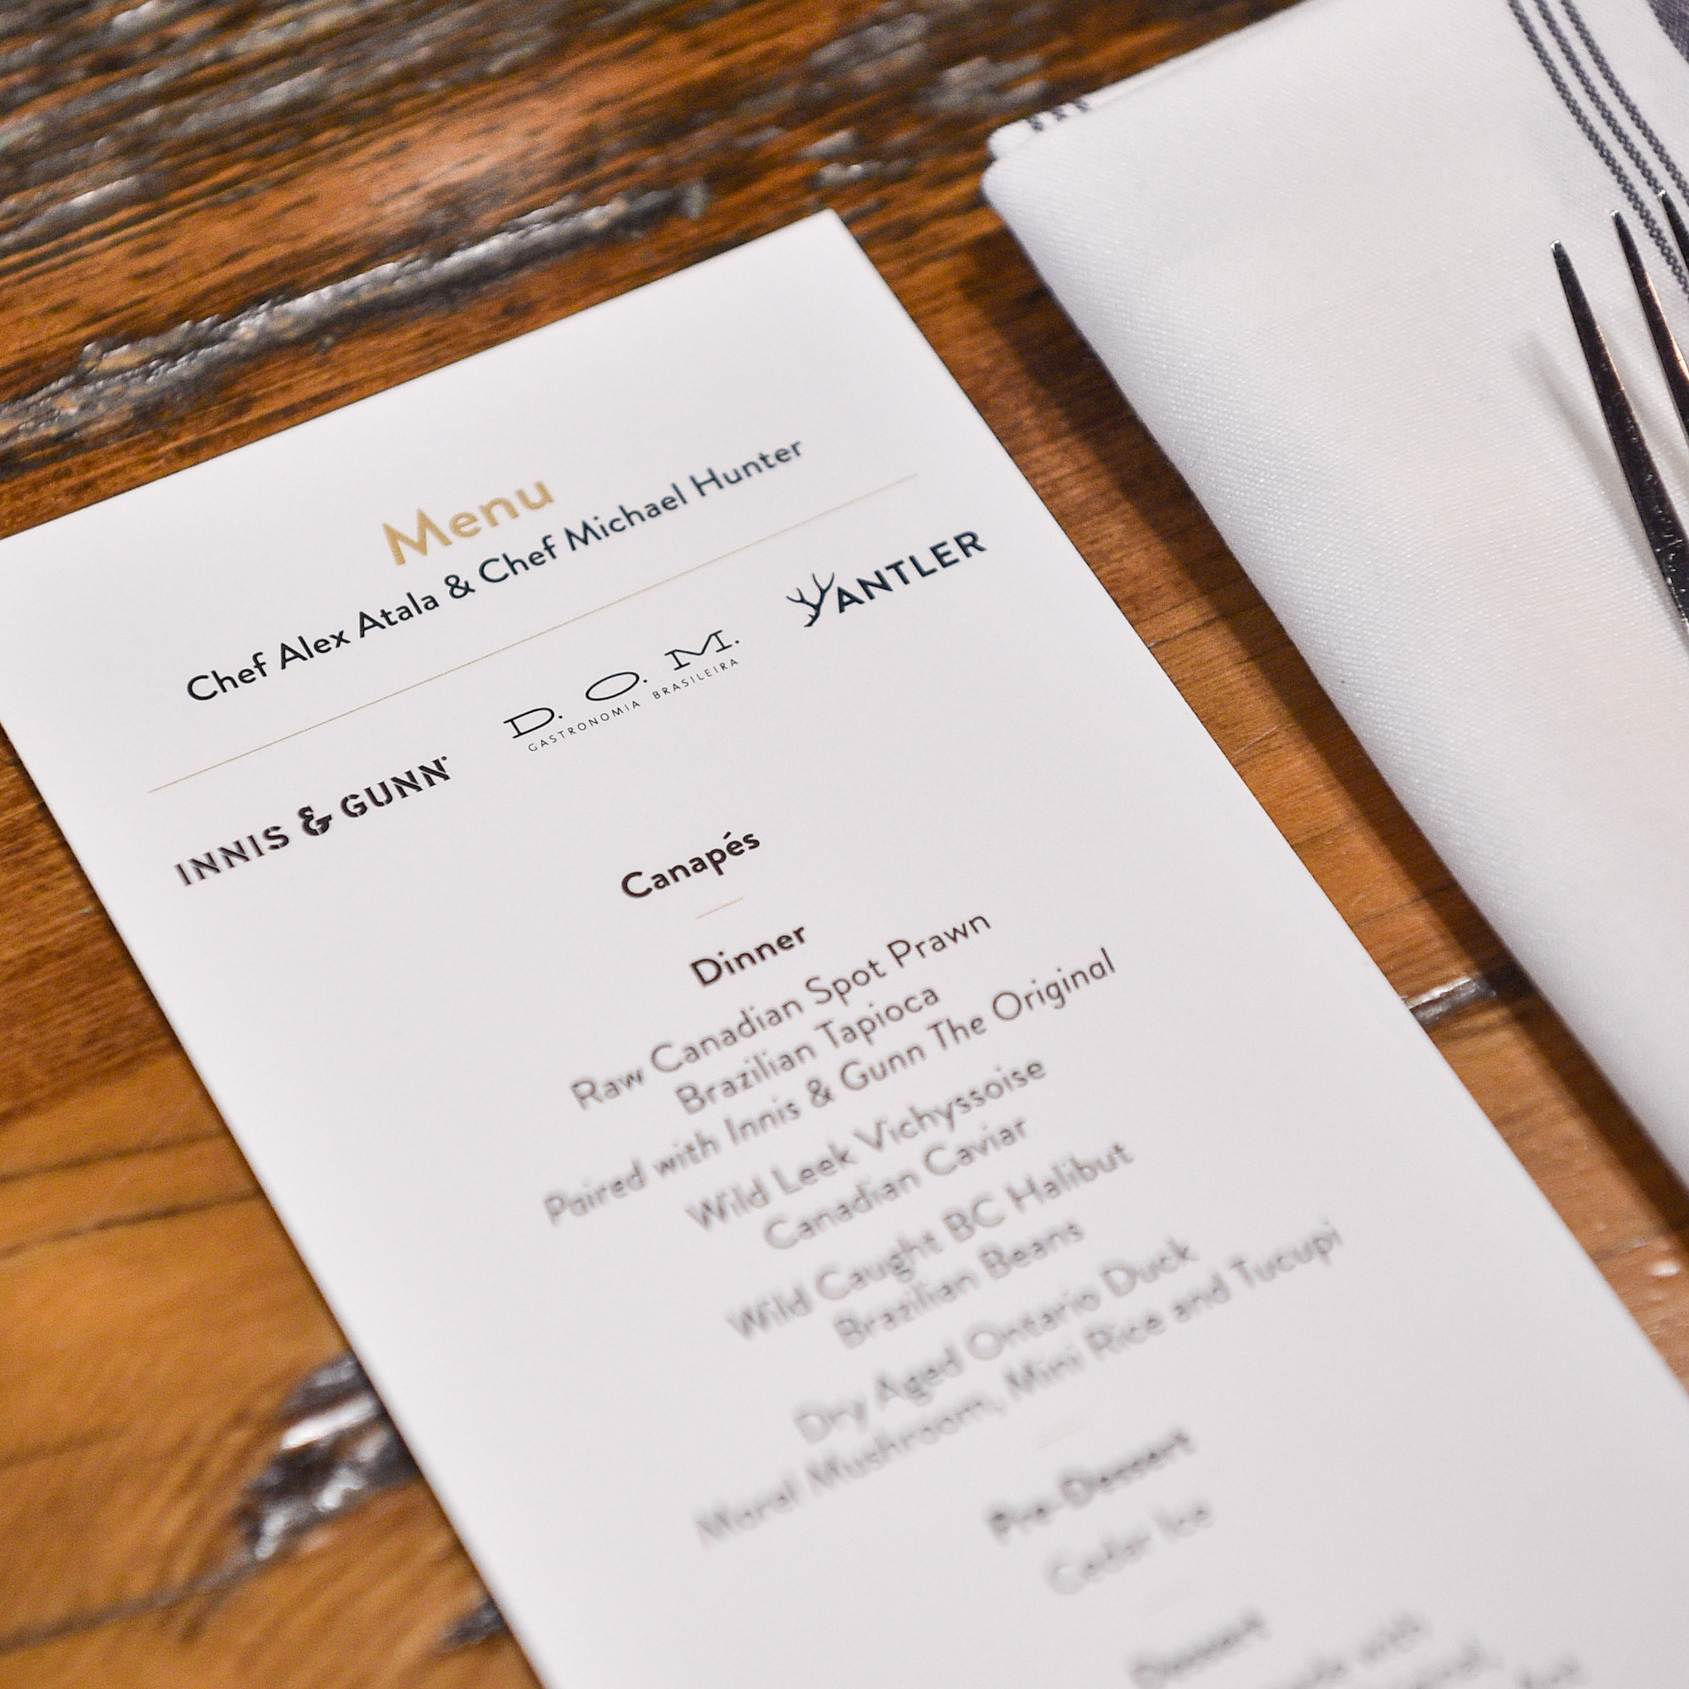 Menu
Chef Alex Atala & Chef Michael Hunter
INNIS & GUNN
D. O. M.
GASTRONOMIA BRASILEIRA
ANTLER
Canapés
Dinner
Raw Canadian Spot Prawn
Brazilian Tapioca
Paired with Innis & Gunn The Original
Wild Leek Vichyssoise
Canadian Caviar
Wild Caught BC Halibut
Brazilian Beans
Dry Aged Ontario Duck
Morel Mushroom, Mini Rice and Tucupi
Pre-Dessert
Cedar Ice
Dessert
with